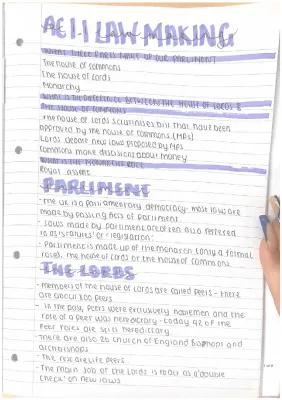 AC1.1 LAW MAKING
WHAT THREE PARTS MAKE UP OUR PARLIMENT?
The house of commons
The house of Lords
Monarchy
WHAT IS THE DIFFERENCE BETWEEN THE HOUSE OF LORDS &
THE HOUSE OF COMMONS
The house of Lords scrutinises bill that have been
approved by the house of commons (MPs)
Lords debate new laws proposed by MPs
Commons make discisions about money
WHAT IS THE MONARCHS ROLE
Royal assent
PARLIMENT
- The UK is a parliamentary democracy - most laws are
made by passing acts of parliment
- laws made by parliment are often also referred
to as 'statutes' or 'legislation'
- Parliment is made up of the monarch (only a formal
role), the house of lords or the house of commons.
THE LORDS
- Members of the house of Lords are called peers - there
are about 800 peers
- In the past, peers were exclusively noblemen and the
role of a peer was hereditary - today 92 of the
peer roles are still hereditary
- There are also 26 church of England Bishops and
archbishops
- The rest are life peers
- The main job of the Lords is to act as a 'double
check' on new laws